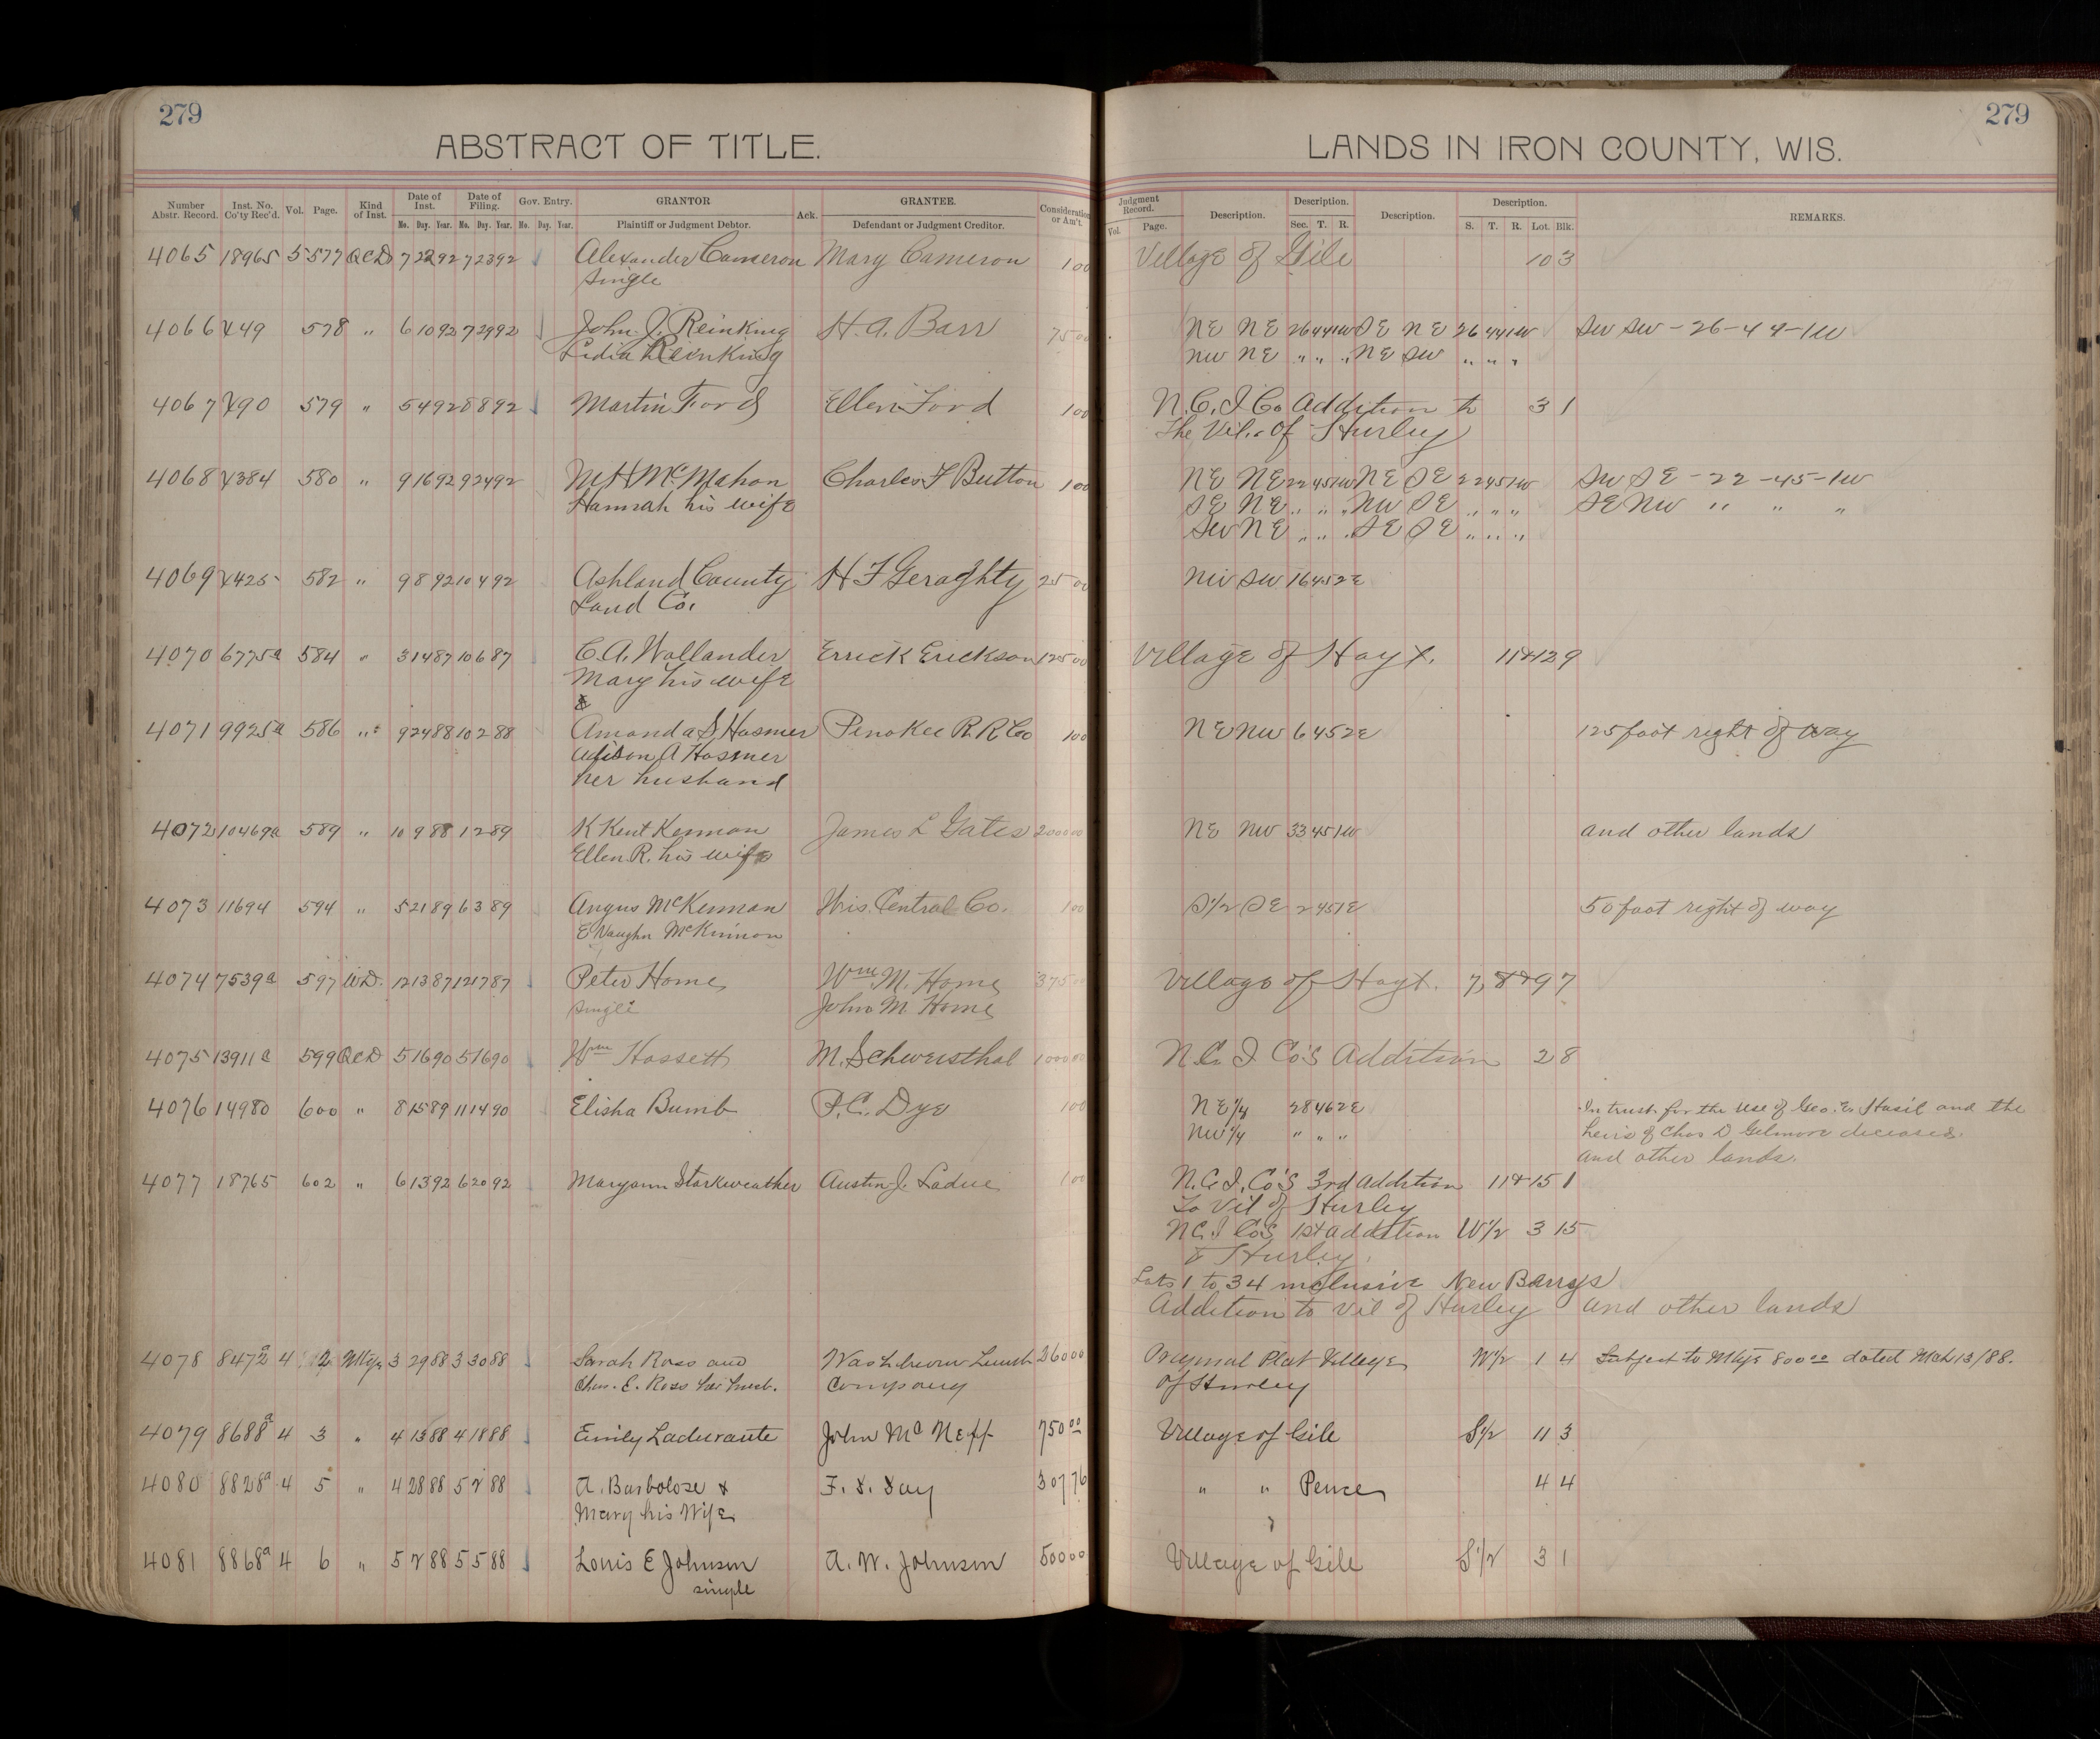 279
ABSTRACT OF TITLE.
Number Abstr. Record. Inst. No. Co'ty Rec'd. Vol. Page. Kind of Inst. Date of Inst. Date of Filing. Gov. Entry. GRANTOR Ack. GRANTEE. Consideration or Am't.
Mo. Day. Year. Mo. Day. Year. Mo. Day. Year. Plaintiff or Judgment Debtor. Defendant or Judgment Creditor.
4065 18965 5 577 QCD 7 22 92 7 23 92 Alexander Cameron Mary Cameron 1 00
single
4066 449 578 " 6 10 92 7 29 92 John J. Reinking H. A. Barr 75 00
Lidia Reinking
4067 490 579 " 5 4 92 8 8 92 Martin Ford Ellen Ford 1 00
4068 4384 580 " 9 16 92 9 24 92 M H McMahon Charles F Button 1 00
Hannah his wife
4069 4425 582 " 9 8 92 10 4 92 Ashland County H F Geraghty 25 00
Land Co.
4070 6775a 584 " 3 14 87 10 6 87 C. A. Wallander Errick Erickson 125 00
Mary his wife
&
4071 9925a 586 " 9 24 88 10 2 88 Amanda S Hosmer Penokee R. R. Co 1 00
Adison A Hosmer
her husband
4072 10469a 589 " 10 9 88 1 2 89 K Kent Kennan James L Gates 2000 00
Ellen R. his wife
4073 11694 594 " 5 21 89 6 3 89 Angus McKennan Wis. Central Co. 1 00
E Vaughn McKinnon
4074 7539a 597 W.D. 12 13 87 12 17 87 Peter Home Wm. M. Home 375 00
single John M. Home
4075 13911a 599 QCD 5 16 90 5 16 90 Wm Hossett M. Schwersthal 1000 00
4076 14980 600 " 8 15 89 11 14 90 Elisha Bumb P. C. Dye 1 00
4077 18765 602 " 6 13 92 6 20 92 Maryann Starkweather Austin J. Ladue 1 00
4078 8472a 4 2 Mtge 3 29 88 3 30 88 Sarah Ross and Washburn Lumb 260 00
Chas. E. Ross her husb. Company
4079 8688a 4 3 " 4 13 88 4 18 88 Emily Ladurante John Mc Neff 750 00
4080 8828a 4 5 " 4 28 88 5 2 88 A. Barbolose & F. S. Day 307 76
Mary his Wife
4081 8868a 4 6 " 5 2 88 5 5 88 Louis E Johnson A. W. Johnson 500 00
single
279
LANDS IN IRON COUNTY, WIS.
Judgment Record. Description. Description. Description. Description. REMARKS.
Vol. Page. Sec. T. R. S. T. R. Lot. Blk.
Village of Gile 10 3
NE NE 26 44 1W SE NE 26 44 1W SW SW - 26 - 44 - 1W
NW NE " " " NE SW " " "
N. C. I Co Addition to 3 1
The Vil. of Hurley
NE NE 22 45 1W NE SE 22 45 1W SW SE - 22 - 45 - 1W
SE NE " " " NW SE " " " SE NW " " "
SW NE " " " SE SE " " "
NW SW 16 45 2E
Village of Hoyt. 11&12 9
NE NW 6 45 2E 125 foot right of way
NE NW 33 45 1W and other lands
S1/2 SE 2 45 1E 50 foot right of way
Village of Hoyt. 7, 8&9 7
N. C. I Co's Addition 2 8
NE 1/4 28 46 2E In trust for the use of Geo. E. Hasil and the
NW 1/4 " " " heirs of Chas D Gilmore deceased.
and other lands.
N. C. I. Co's 3rd addition 11&15 1
To Vil of Hurley
N C. I Co's 1st addition W1/2 3 15
to Hurley.
Lots 1 to 34 inclusive New Barrys
Addition to Vil of Hurley and other lands
Original Plat Village W1/2 1 4 Subject to Mtge 800 00 dated Mch 13/88.
of Hurley
Village of Gile S1/2 11 3
" " Pence 4 4
Village of Gile S1/2 3 1